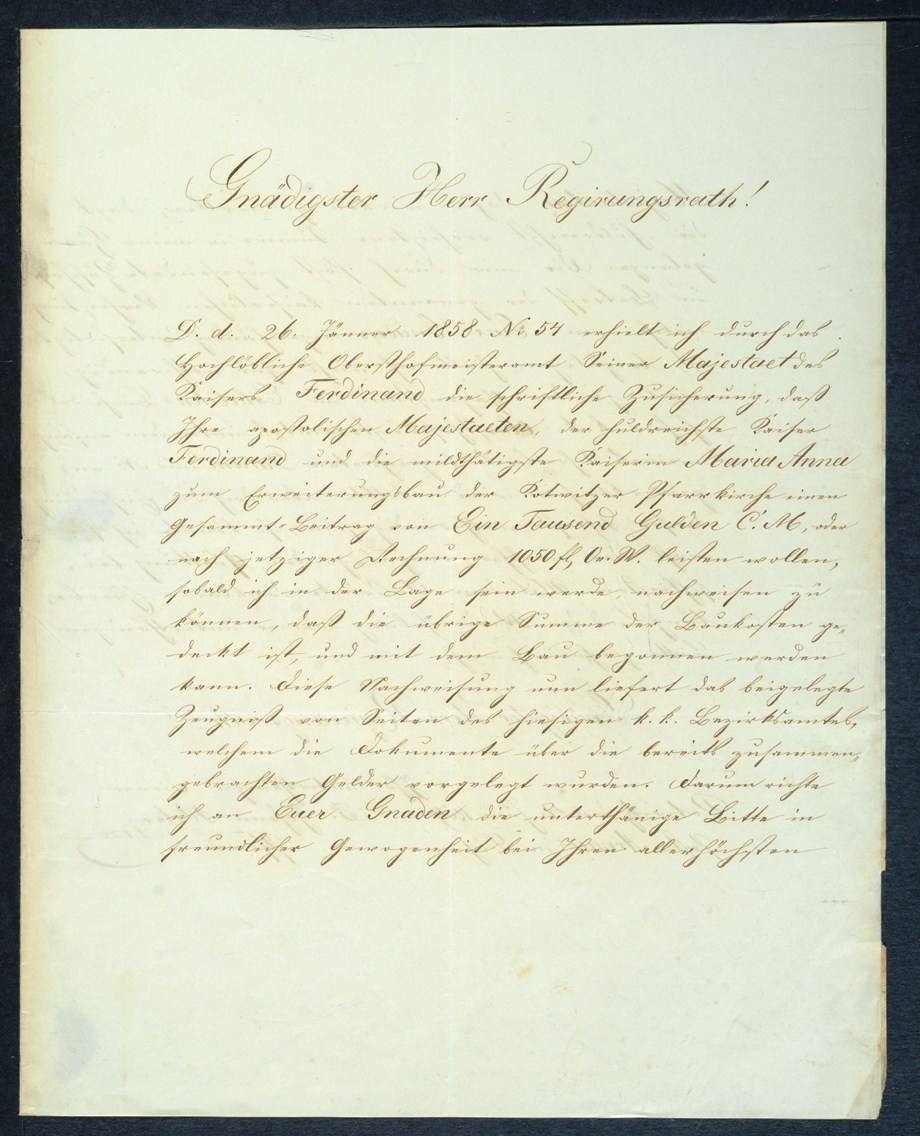 Gnädigster Herr Regirungsrath!
D. d. 26. Jänner 1858 No 54 erhielt ich durch das
Hochlöbliche Obersthofmeisteramt Seiner Majestaet des
Kaisers Ferdinand die schriftliche Zusicherung, daß
Ihre apostolischen Majestaeten, der huldreichste Kaiser
Ferdinand und die mildthätigste Kaiserin Maria Anna
zum Erweiterungsbau der Kotwitzer Pfarrkirche einen
Gesammt-Beitrag von Ein Tausend Gulden C. M, oder
nach jetziger Rechnung 1050 fl, Oe. W. leisten wollen,
sobald ich in der Lage sein werde, nachweisen zu
können, daß die übrige Summe der Baukosten ge-
deckt ist, und mit dem Bau begonnen werden
kann. Diese Nachweisung nun liefert das beigelegte
Zeugniß von Seiten des hiesigen k. k. Bezirksamtes,
welchem die Dokumente über die bereits zusammen-
gebrachten Gelder vorgelegt wurden. Darum richte
ich an Euer Gnaden die unterthänige Bitte in
freundlicher Gewogenheit bei Ihren allerhöchsten